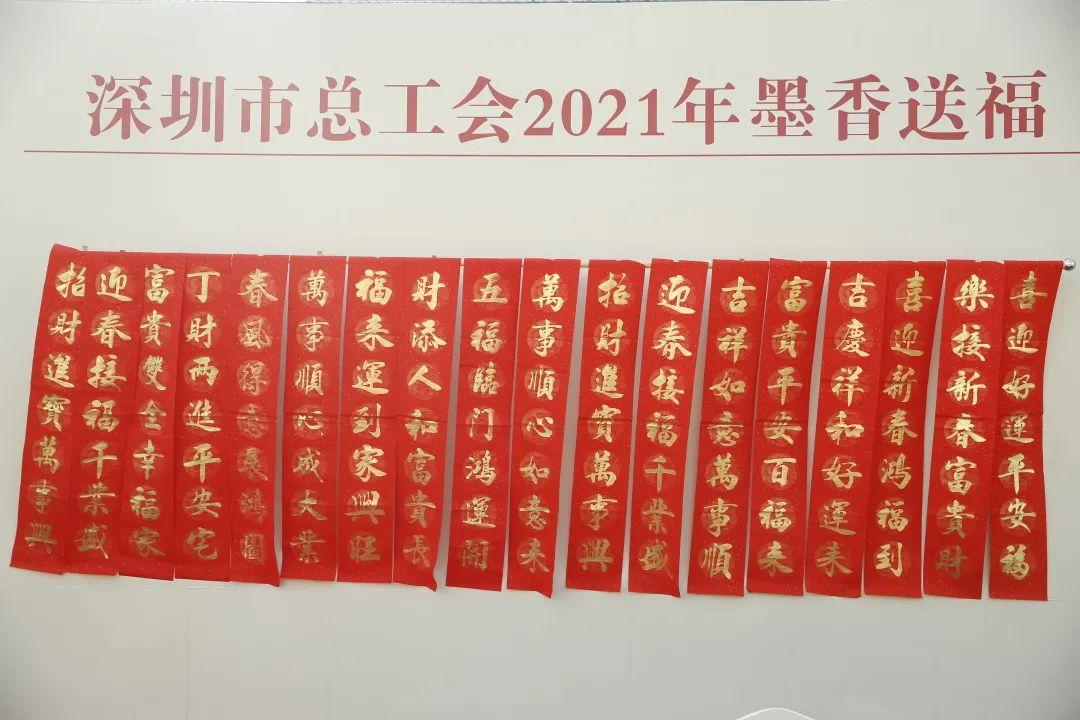 深圳市总工会2021年墨香送福
喜迎好運平安福
樂接新春富貴財
喜迎新春鴻福到
吉慶祥和好運来
富貴平安百福来
吉祥如意萬事順
迎春接福千業盛
招財進寳萬事興
萬事順心如意来
五福臨门鴻運開
財添人和富貴長
福来運到家興旺
萬事順心成大業
春風得意展鴻圖
丁財两進平安宅
富貴雙全幸福家
迎春接福千業盛
招財進寳萬事興